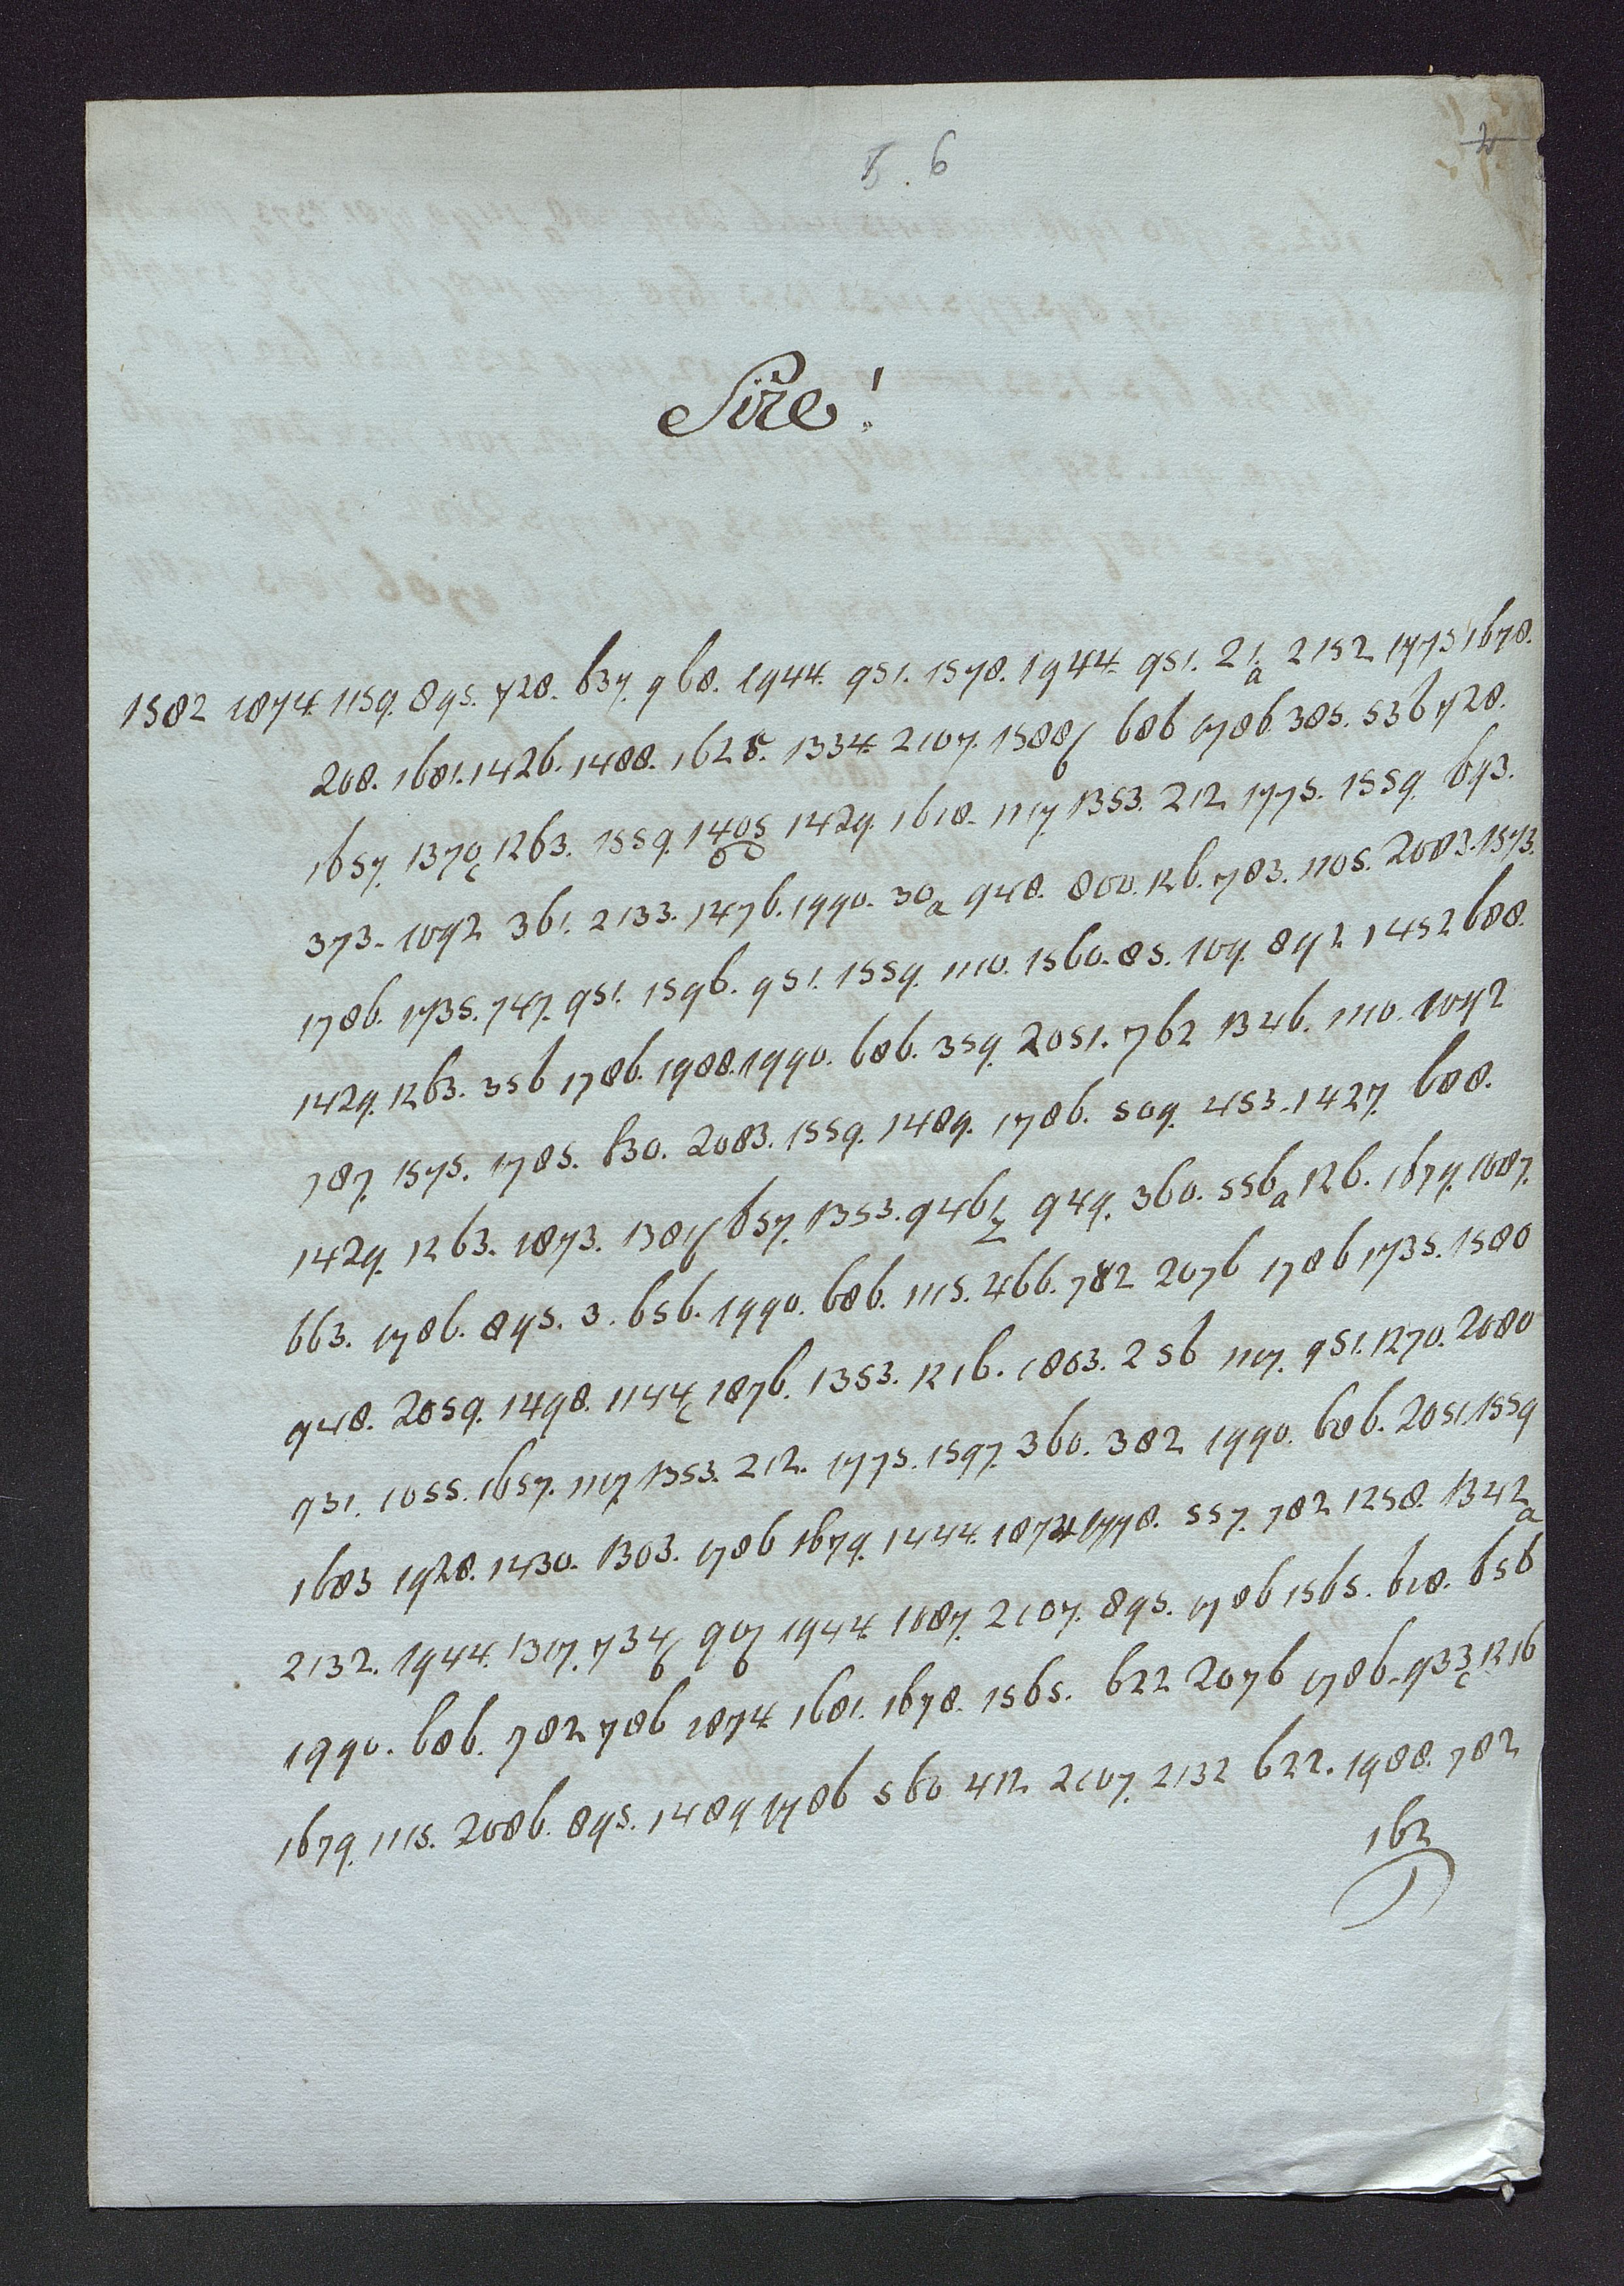 5. 6
2
Sire!
1582 1874. 1159. 895. 728. 637. 968. 1944. 951. 1578. 1944. 951. 21.a 2152 1775 1678.
208. 1681. 1426. 1488. 1628. 1334. 2107. 1588b 686 1786 385. 536 728.
1657. 1370c 1263. 1559. 1405 1429. 1618. 1117. 1353. 212 1775. 1559. 693.
373. 1092 361. 2133. 1476. 1990. 30a 948. 800. 126. 783. 1105. 2083. 1573.
1786. 1735. 747. 951. 1596. 951. 1559. 1110. 1560. 85. 109. 892 1452 688.
1429. 1263. 356 1786. 1988. 1990. 686. 359. 2051. 762 1346. 1110. 1092
787. 1575. 1785. 630. 2083. 1559. 1489. 1786. 509. 453. 1427. 688.
1429. 1263. 1873. 1381b 657. 1353. 9461z 949. 360. 556a 126. 1679. 1087.
663. 1786. 895. 3. 656. 1990. 686. 1115. 466. 782 2076 1786 1735. 1580
948. 2059. 1498. 1144c 1876. 1353. 1216. 1863. 256 1107. 951. 1270. 2080
931. 1055. 1657. 1107. 1353. 212. 1775. 1597. 360. 382 1990. 686. 2051. 1559
1683 1928. 1430. 1303. 1786 1679. 1444. 1874 1778. 557. 782 1258. 1342a
2132. 1944. 1307. 734b 907b 1944. 1087. 2107. 895. 1786 1565. 618. 656
1990. 686. 782 786 1874 1681. 1678. 1565. 622 2076 1786. 933c 1216
1679. 1115. 2086. 895. 1489 1786 560 412 2107. 2132 622. 1988. 782
162